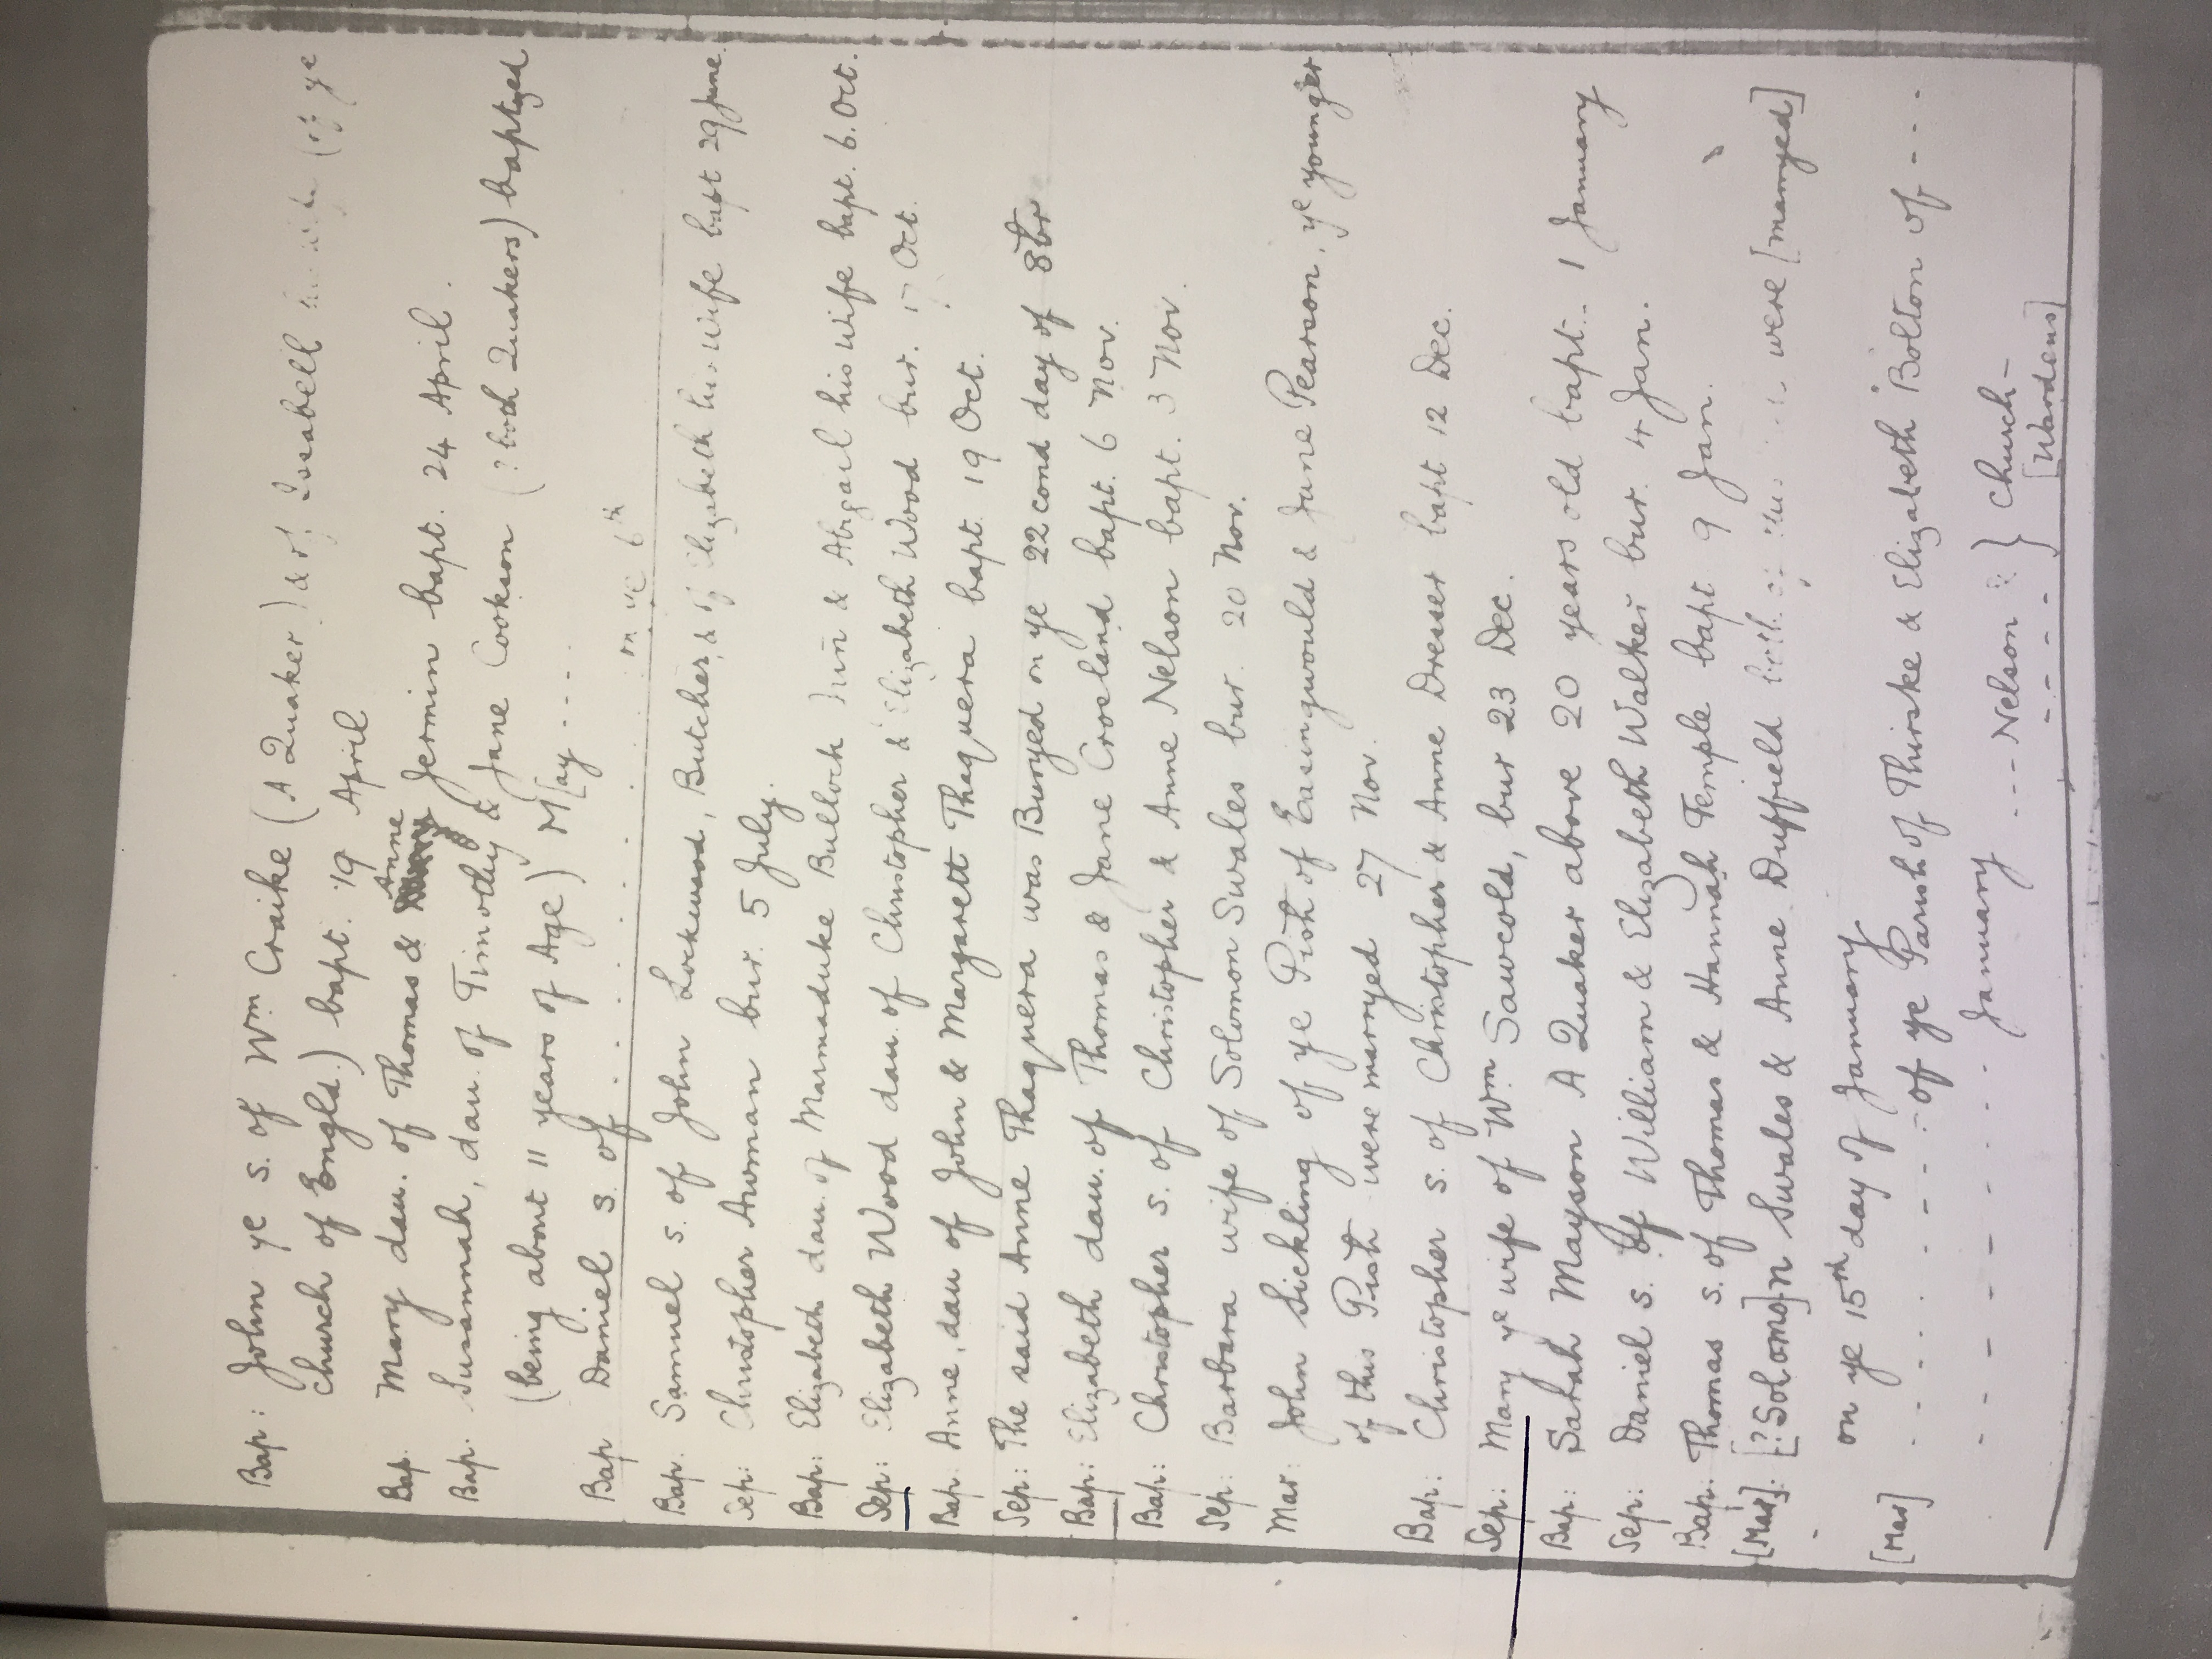 Bap: John ye s. of Wm Craike (A Quaker) & of Isabell his wife (of ye
Church of Engld.) bapt. 19 April
Bap. Mary dau. of Thomas & Anne Jermin bapt. 24 April.
Bap. Susannah, dau. of Timothy & Jane Cookson (? both Quakers) baptyed
(being about 11 years of Age) M[ay ....
Bap Daniel s. of . . . . . . . . . . . on ye 6th
Bap. Samuel s. of John Lockwood, Butcher, & of Elizabeth his wife bapt 29 June.
Sep: Christopher Awman bur. 5 July.
Bap: Elizabeth dau. of Marmaduke Bullock & Abigail his wife bapt. 6. Oct.
Sep: Elizabeth Wood dau. of Christopher & Elizabeth Wood bur. 17 Oct.
Bap. Anne, dau of John & Margarett Thaquera bapt. 19 Oct.
Sep: The said Anne Thaquera was Buryed on ye 22 cond day of 8br
Bap: Elizabeth dau. of Thomas & Jane Crosland bapt. 6 Nov.
Bap: Christopher s. of Christopher & Anne Nelson bapt. 3 Nov.
Sep: Barbara wife of Solomon Swales bur. 20 Nov.
Mar: John Sickling of ye Pish of Easingwould & Jane Pearson, ye younger
of this Pish were marryed 27 Nov.
Bap: Christopher s. of Christopher & Anne Dresser bapt 12 Dec.
Sep: Mary ye wife of Wm Sawcold, bur 23 Dec.
Bap: Sarah Mayson A Quaker above 20 years old bapt.. 1 January
Sep: Daniel s. of William & Elizabeth Walker bur. 4 Jan.
Bap: Thomas s. of Thomas & Hannah Temple bapt 9 Jan.
[Mar]. [? Solomo]n Swales & Anne Duffield both of this were [marryed]
on ye 15th day of January
[Mar] . - . . - - - - of ye Parish of Thirske & Elizabeth Bolton of - - -
- - - - - . . January
--- Nelson } Church-
- - - - } [Wardens]